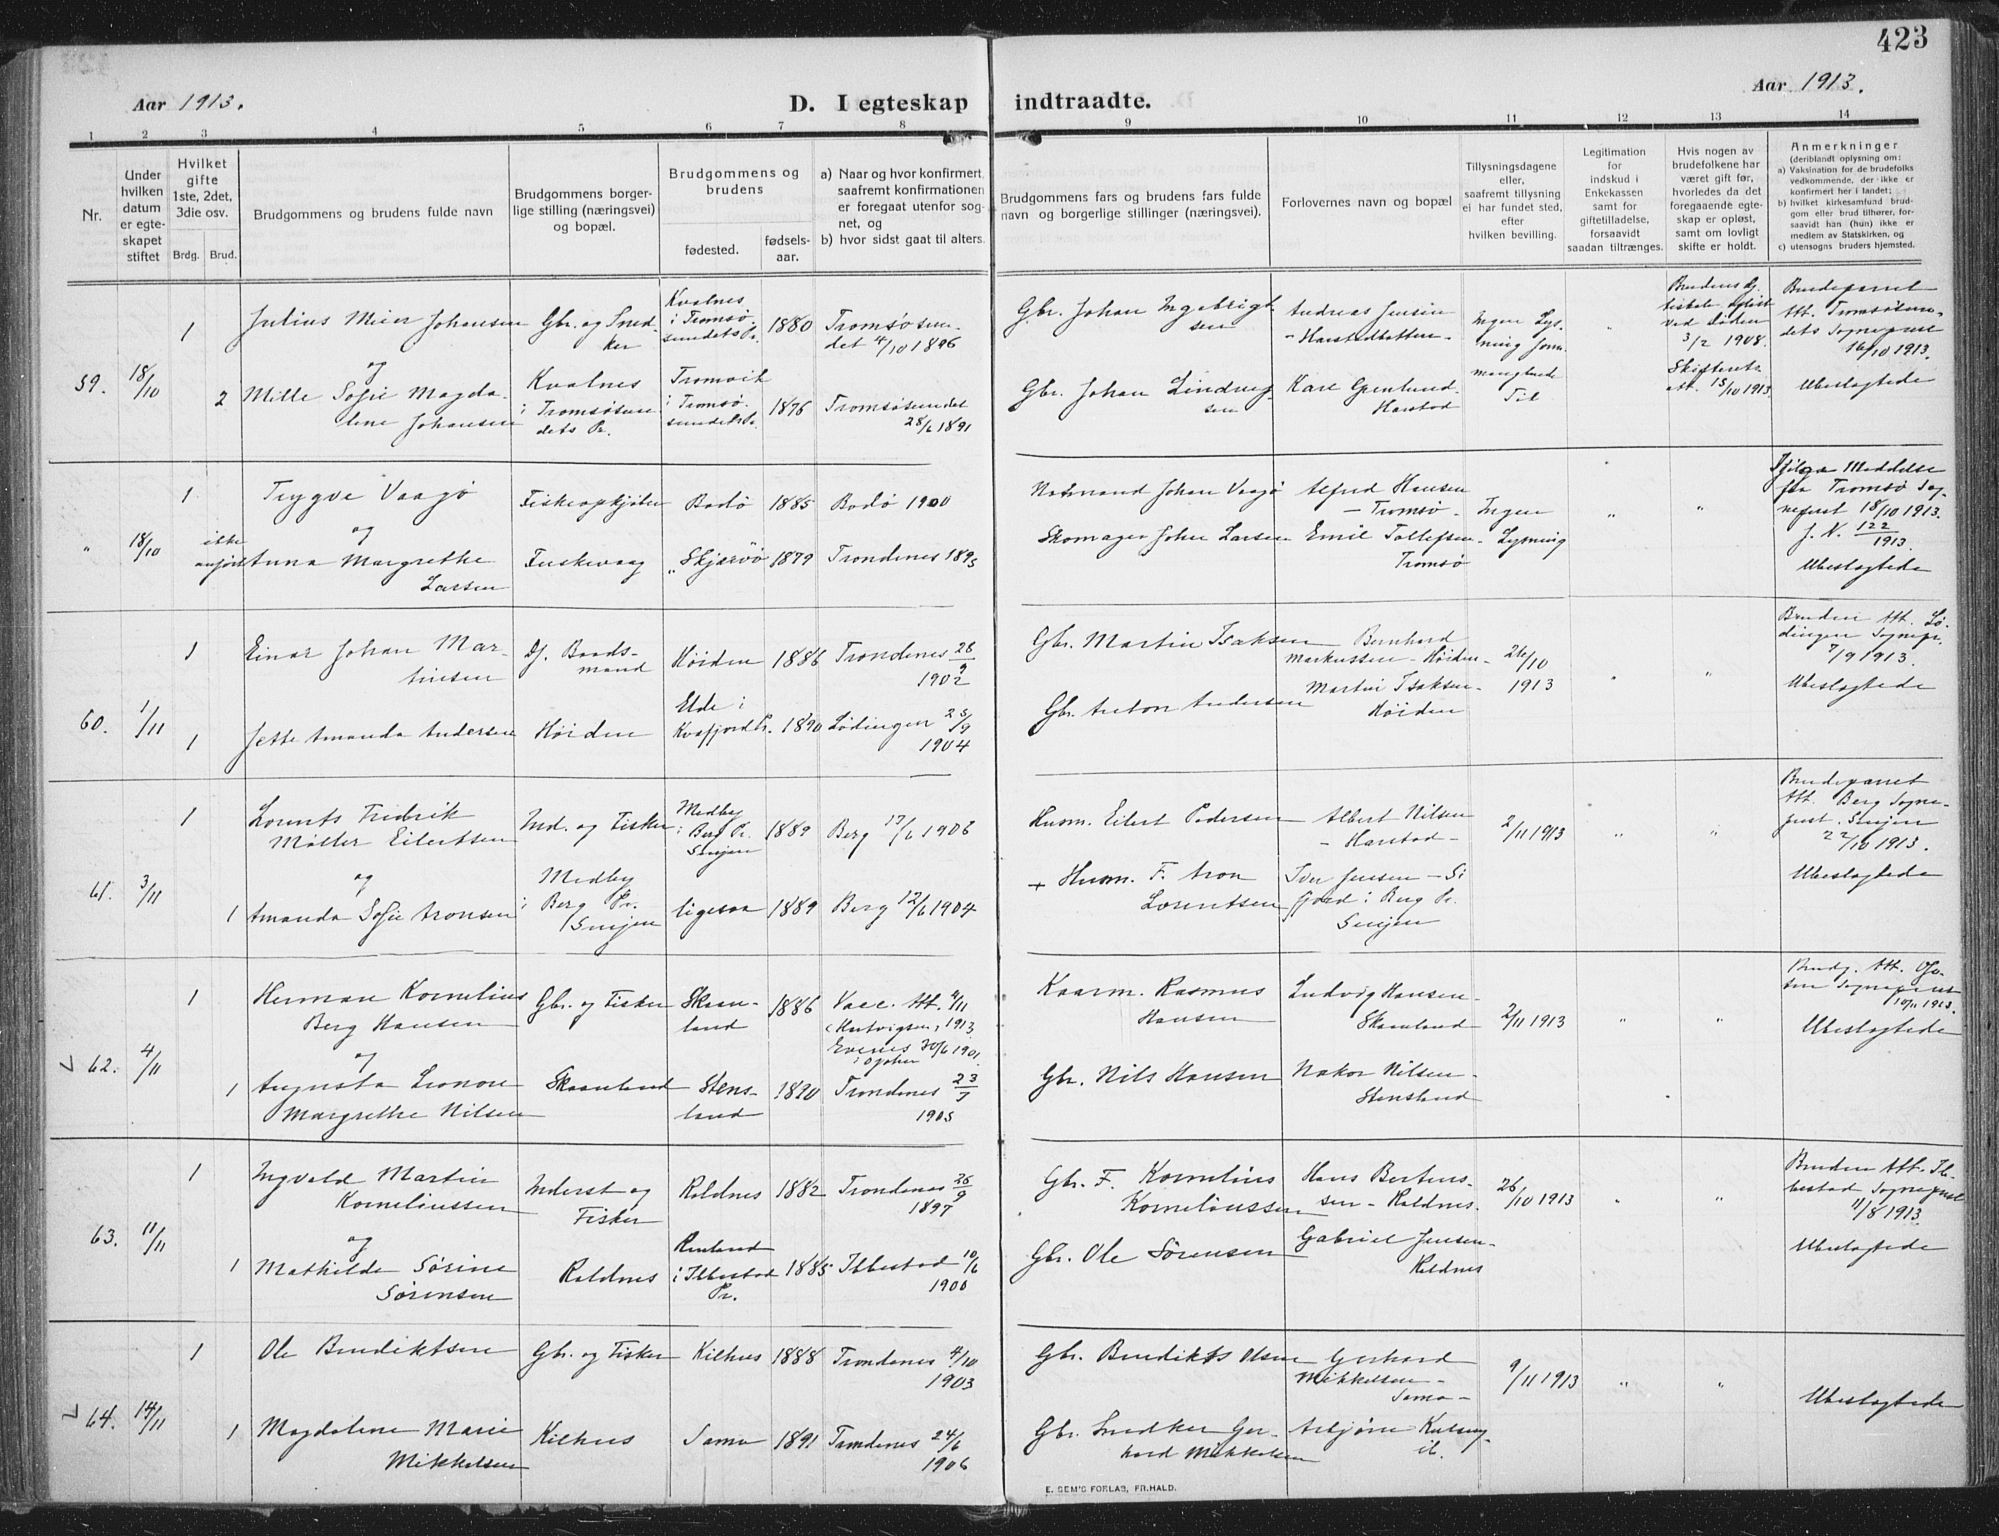 423
Aar 1913.
D. I egteskap indtraadte.
Aar 1913.
1 2 3 4 5 6 7 8 9 10 11 12 13 14
Nr.
Under
hvilken
datum
er egte-
skapet
stiftet
Hvilket
gifte
1ste, 2det,
3die osv.
Brdg. Brud.
Brudgommens og brudens fulde navn
Brudgommens borger-
lige stilling (næringsvei)
og bopæl.
Brudgommens og
brudens
fødested.
fødsels-
aar.
a) Naar og hvor konfirmert,
saafremt konfirmationen
er foregaat utenfor sog-
net, og
b) hvor sidst gaat til alters.
Brudgommens fars og brudens fars fulde
navn og borgerlige stillinger (næringsvei).
Forlovernes navn og bopæl
Tillysningsdagene
eller,
saafremt tillysning
ei har fundet sted,
efter
hvilken bevilling.
Legitimation
for
indskud i
Enkekassen
samt for
giftetilladelse,
forsaavidt
saadan tiltrænges.
Hvis nogen av
brudefolkene har
været gift før,
hvorledes da det
foregaaende egte-
skap er opløst,
samt om lovligt
skifte er holdt.
Anmerkninger
(deriblandt oplysning om:
a) Vaksination for de brudefolks
vedkommende, der ikke er
konfirmert her i landet;
b) hvilket kirkesamfund brud-
gom eller brud tilhører, for-
saavidt han (hun) ikke er
medlem av Statskirken, og
c) utensogns bruders hjemsted.
59. 18/10
1 Julius Meier Johansen
og
Gbr. og Sned-
ker
Kvalnes
i Tromsø-
sundets Pr.
1880
Tromsøsun-
det 4/10 1896
Gbr. Johan Ingebrigt-
sen
Andreas Jensen
- Harstadbotten -
2 Mille Sofie Magda-
lene Johansen
Kvalnes
i Tromsøsun-
dets Pr.
Tromvik
i Tromsø-
sundets Pr.
1876
Tromsøsundet
28/6 1891
Gbr. Johan Lindrup-
sen
Harstad
Ingen Lys-
ning
"
ved Døden
3/2 1908.
15/10 1913
Brudeparret
Att. Tromsøsun-
dets Sogneprest
16/10 1913.
Ubeslægtede
" 18/10
1 Trygve Vaagø
og
Fiskeopkjøber
Bodø 1885 Bodø 1900
Johan Vaagø
Alfred Hansen
- Tromsø -
ikke
anført Anna Margrethe
Larsen
Skjærvø 1879 Trondenes 1895
Skomager John Larsen
Emil Tollefsen -
Tromsø
Ingen
Lysning
" "
Meddelse
fra Tromsø Sog-
neprest 18/10 1913.
J. N. 122/1913.
Ubeslægtede
60. 1/11
1 Einar Johan Mar-
tinsen
Dj. Baads-
mand
Høiden 1886 Trondenes 28/9
1902
Gbr. Martin Isaksen
Bernhard
Markussen - Høiden -
26/10
1913
" "
Bruden Att. Lø-
dingen Sognepr.
7/9 1913.
Ubeslægtede
1 Jette Amanda Andersen
Høiden
Ude i
Kvæfjord Pr. 1890 Lødingen 25/9
1904
Gbr. Anton Andersen
Martin Isaksen -
Høiden
61. 3/11
1 Lorents Fredrik
Møller Eilertsen
og
Ind. og Fisker
Medby
i Berg Pr.
Senjen
1889 Berg 17/6 1906
Husm. Eilert Pedersen
Albert Nilsen
- Harstad -
2/11 1913
" "
Brudeparret
Att. Berg Sogne-
prest. Senjen
22/10 1913.
Ubeslægtede
1 Amanda Sofie Aronsen
Medby
i Berg Pr.
Senjen
ligesaa 1889 Berg 12/6 1904
+ Husm. F. Aron
Lorentsen
Iver Jensen - Si-
fjord i Berg Pr.
Senjen
62. 4/11
1 Herman Kornelius
Berg Hansen
og
Gbr. og Fisker
Skaan-
land
1886
Vacc. Att. 4/11
(Hartvigsen, 1913
Evenes 30/6 1901
i Ofoten
Kaarm. Rasmus
Hansen
Ludvig Hansen -
Skaanland
2/11 1913
" "
Brudg. Att. Ofo-
ten Sogneprest
10/11 1913.
Ubeslægtede
1 Augusta Leonore
Margrethe Nilsen
Skaanland
Stens-
land
1890
Trondenes 23/7
1905
Gbr. Nils Hansen
Nakor Nilsen -
Stensland
63. 11/11
1 Ingvald Martin
Korneliussen
og
Inderst og
Fisker
Roldnes 1882 Trondenes 26/9
1897
Gbr. F. Kornelius
Korneliussen
Hans Berteus-
sen - Roldnes.
26/10 1913
" "
Bruden Att. Ib-
bestad Sogneprest
11/8 1913.
Ubeslægtede
1 Mathilde Sørine
Sørensen
Roldnes
i Ibbestad
Pr.
1885 Ibbestad 10/6
1900
Gbr. Ole Sørensen
Gabriel Jensen -
Roldnes
64. 14/11
1 Ole Benediktsen
Gbr. og Fisker
Kilhus 1888 Trondenes 4/10
1903
Gbr. Benedikts Olsen
Gerhard
Mikkelsen -
Sama -
9/11 1913
" "
Ubeslægtede
1 Magdalene Marie
Mikkelsen
Kilhus
Sama 1891 Trondenes 24/6
1906
Gbr. Snedker Ger-
hard Mikkelsen
E. SEM'S FORLAG, FR.HALD.